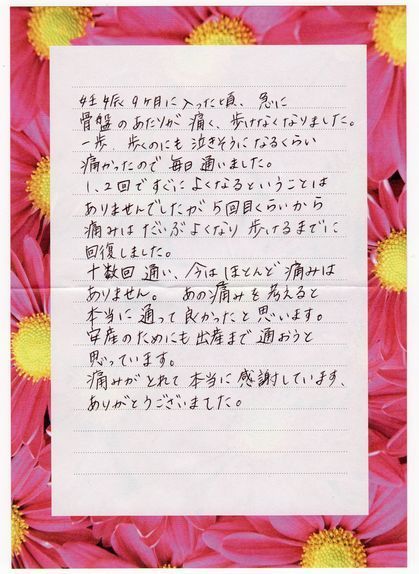 妊娠9ヶ月に入った頃、急に
骨盤のあたりが痛く、歩けなくなりました。
一歩、歩くのにも泣きそうになるくらい
痛かったので毎日通いました。
1、2回ですぐによくなるということは
ありませんでしたが5回目くらいから
痛みはだいぶよくなり歩けるまでに
回復しました。
十数回通い、今はほとんど痛みは
ありません。あの痛みを考えると
本当に通って良かったと思います。
安産のためにも出産まで通おうと
思っています。
痛みがとれて本当に感謝しています、
ありがとうございました。